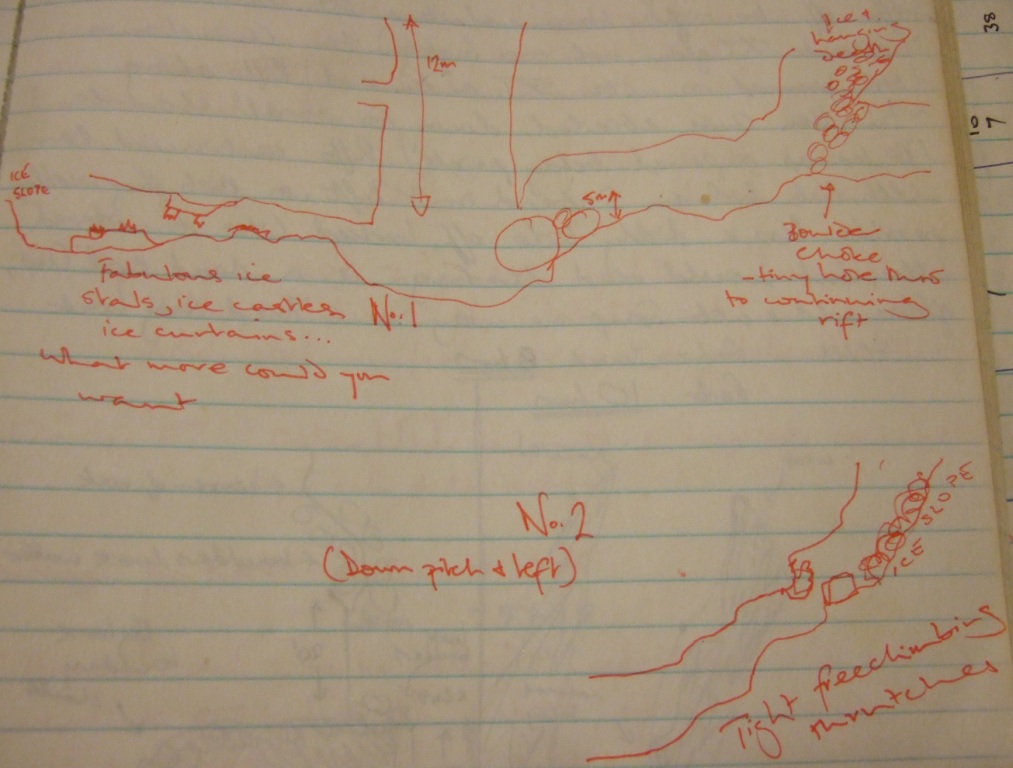 Ice +
hanging
death
12m
ICE
SLOPE
5m
Boulder
Choke
- tiny hole thro
to continuing
rift
Fabulous ice
stals, ice castles
ice curtains...
What more could you
want
No. 1
No. 2
(Down pitch + left)
ICE SLOPE
Tight freeclimbing
thrutches
38
10
7